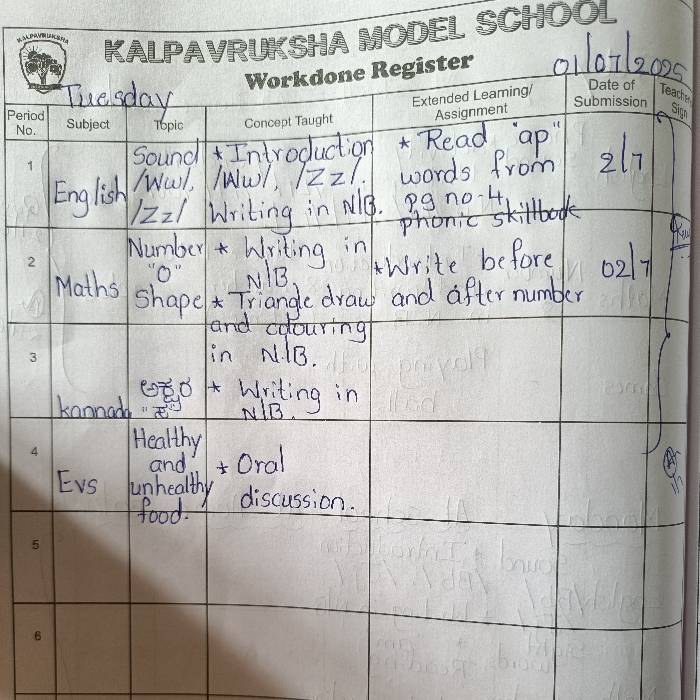 KALPAVRUKSHA
KALPAVRUKSHA MODEL SCHOOL
Workdone Register
Tuesday
01/07/2025
Period No.
Subject
Topic
Concept Taught
Extended Learning/ Assignment
Date of Submission
1
English
Sound
/Ww/,
/Zz/
* Introduction
/Ww/, /Zz/.
Writing in N/B.
* Read "ap"
words from
pg no-4
phonic skillbook
2/7
2
Maths
Number
"0"
Shape
* Writing in
N/B.
* Triangle draw
and colouring
in N/B.
* Write before
and after number
02/7
3
kannada
ಅಕ್ಷರ
* Writing in
N/B.
4
Evs
Healthy
and
unhealthy
food.
* Oral
discussion.
5
6